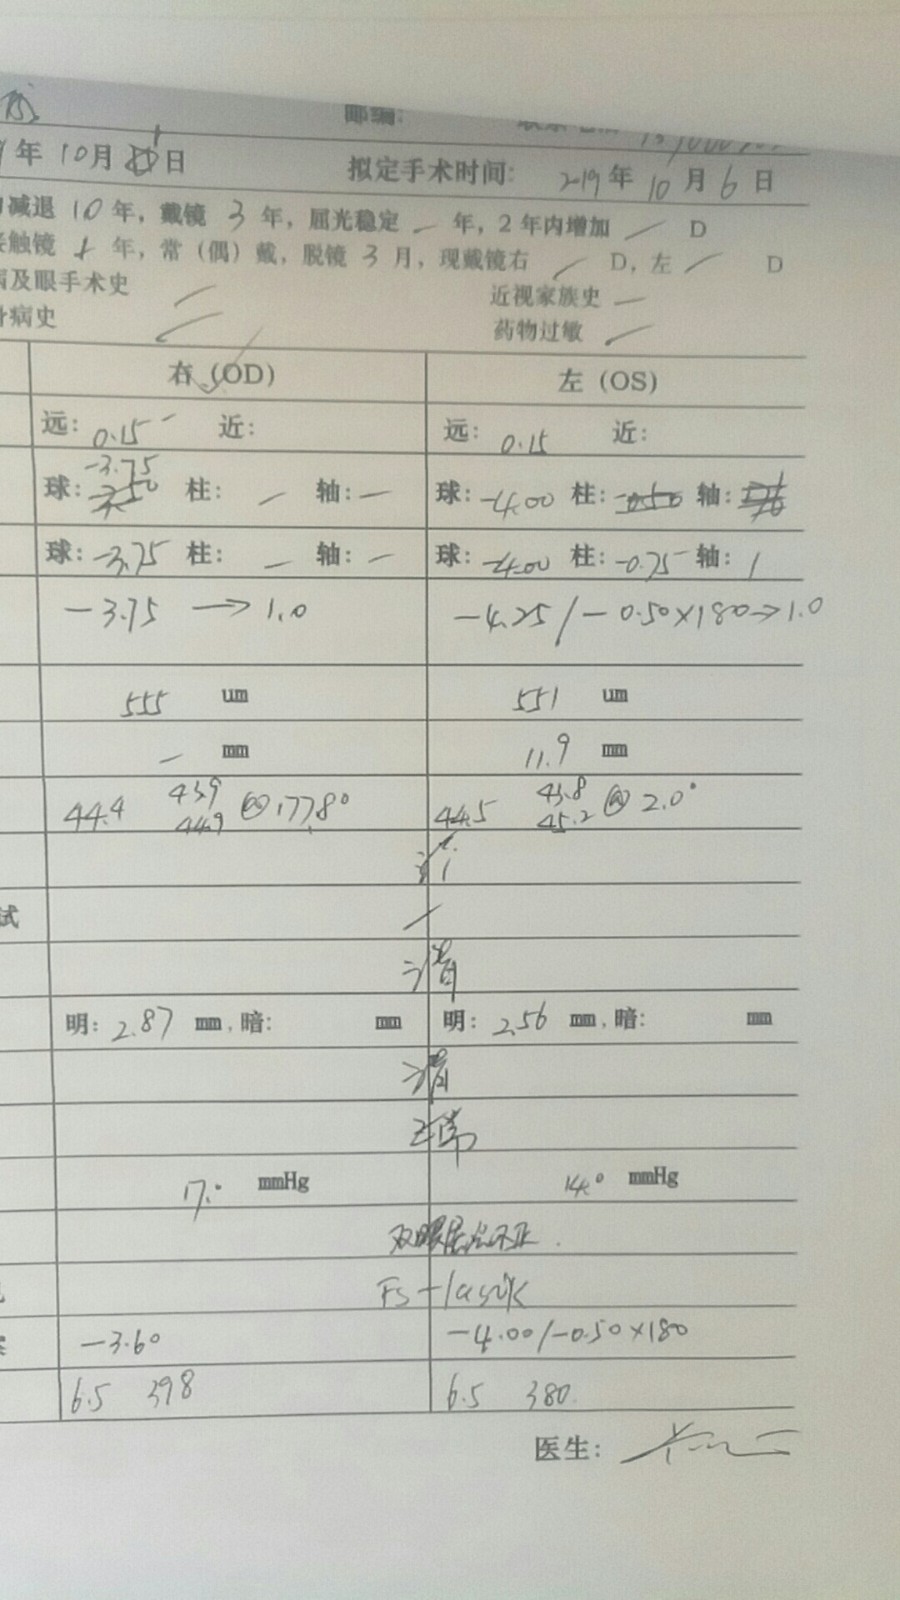 邮编:
年 10月 日 拟定手术时间: 2019年 10月 6日
减退 10年, 戴镜 3年, 屈光稳定 — 年, 2年内增加 — D
接触镜 年, 常(偶)戴, 脱镜 3月, 现戴镜右 — D, 左 — D
病及眼手术史 — 近视家族史 —
身病史 — 药物过敏 —
右 (OD) 左 (OS)
远: 0.15 近: 远: 0.15 近:
球: -3.75 柱: — 轴: — 球: -4.00 柱: -0.50 轴:
球: -3.75 柱: — 轴: — 球: -4.00 柱: -0.75 轴: 1
-3.75 → 1.0 -4.25/-0.50×180→1.0
555 um 551 um
— mm 11.9 mm
44.4 43.9 44.9 @177.8° 44.5 43.8 45.2 @ 2.0°
试 —
清
明: 2.87 mm,暗: mm 明: 2.56 mm,暗: mm
清
正常
17.0 mmHg 14.0 mmHg
双眼屈光不正.
Fs-lasik
-3.60 -4.00/-0.50×180
6.5 398 6.5 380.
医生: